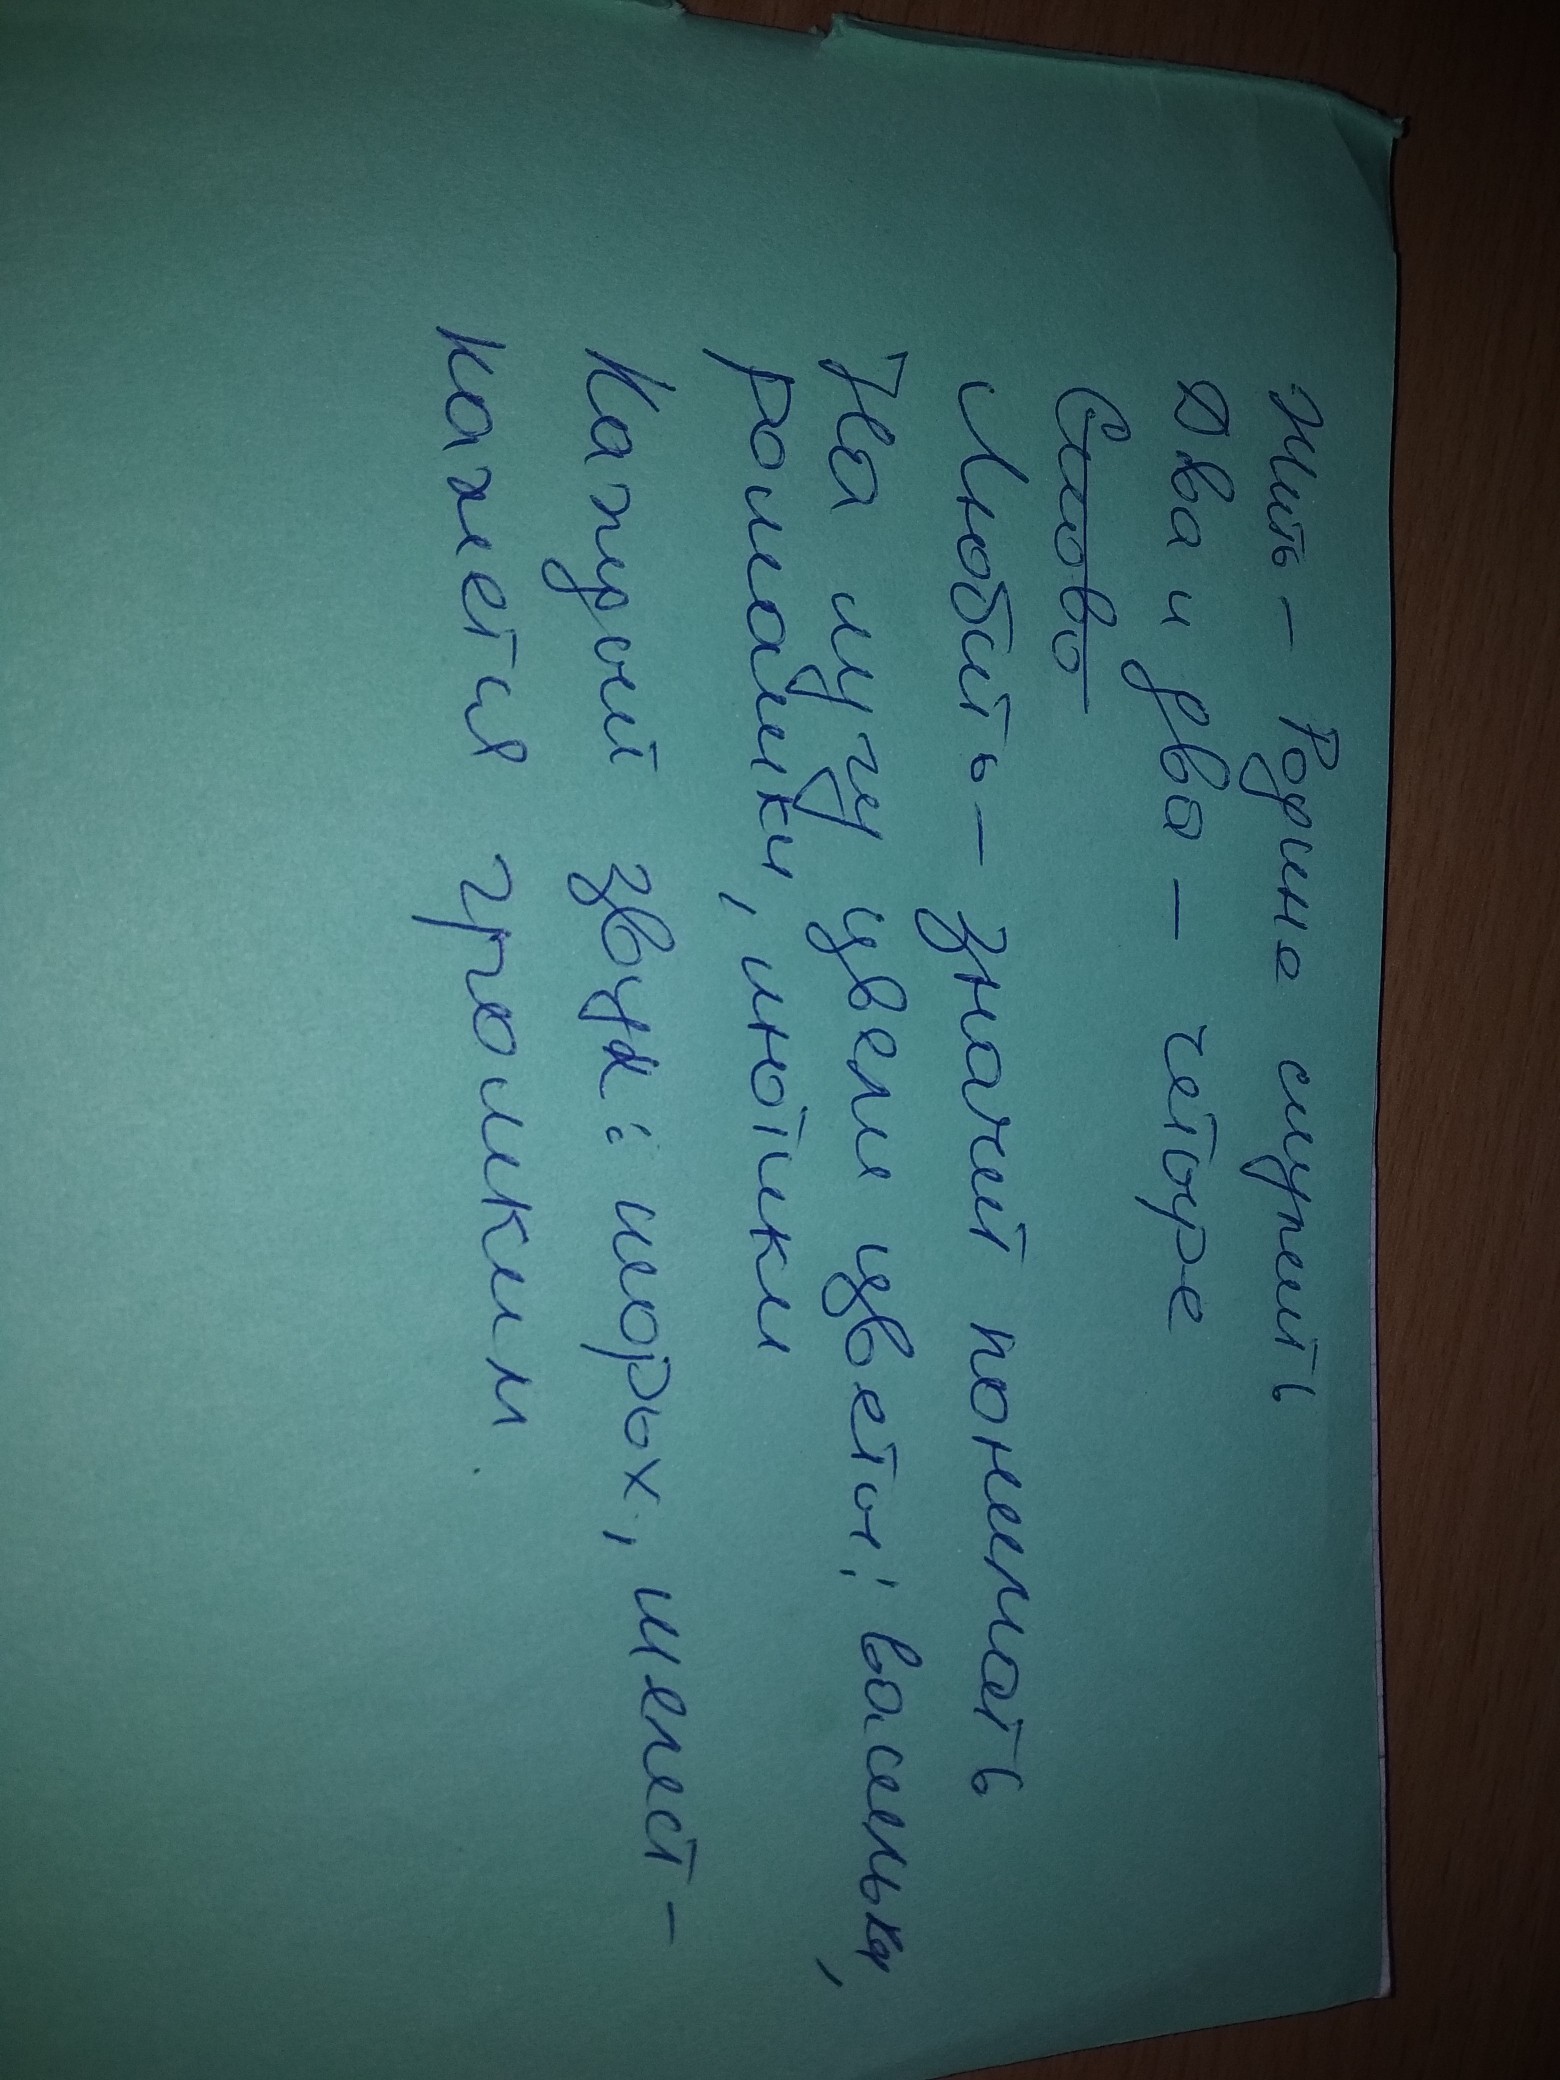 Жить – Родине служить
Два и два – четыре
Слово
Любить – значит понимать
На лугу цвели цветы: васильки,
ромашки, лютики
Каждый звук: шорох, шелест –
кажется громким.